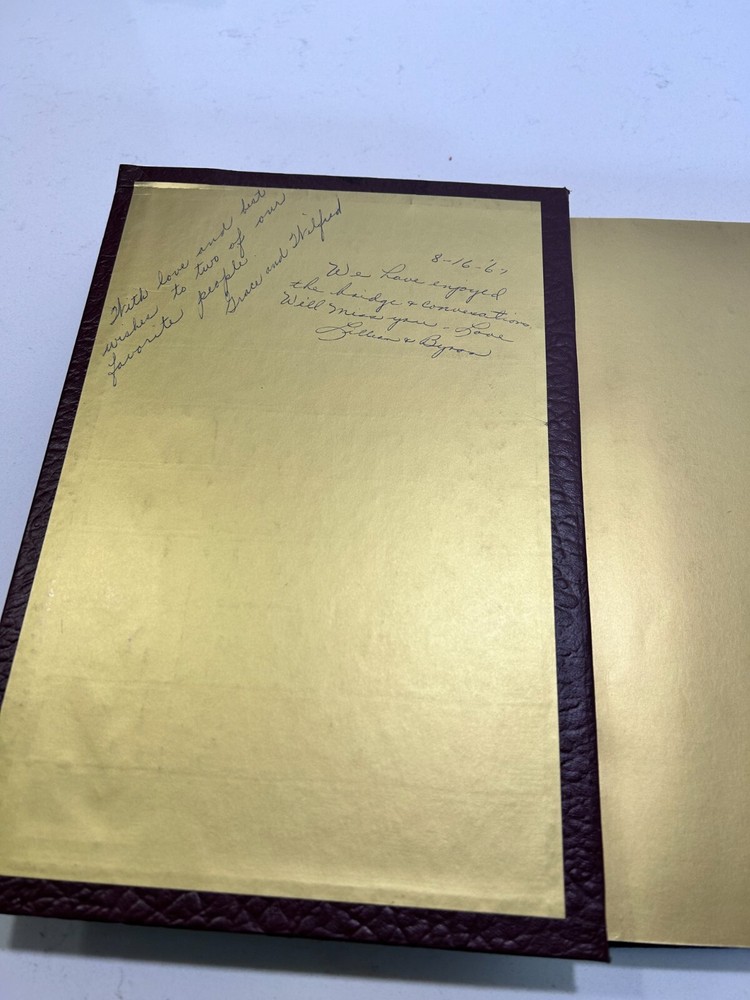 With love and best
wishes to two of our
favorite people.
Grace and Wilfred
8-16-'67
We have enjoyed
the bridge & conversations.
Will miss you - Love
Lillian & Byron